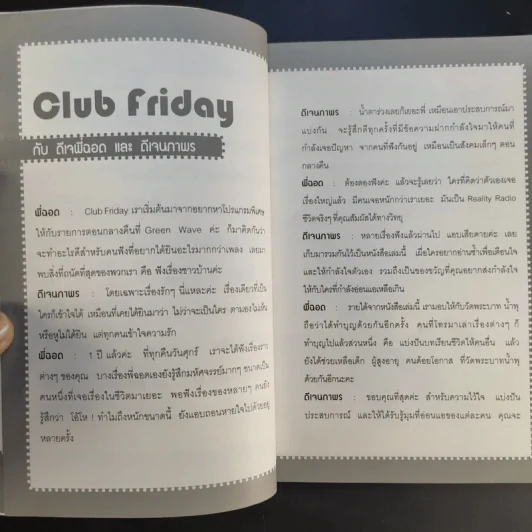 Club Friday
กับ ดีเจพี่ฉอด และ ดีเจนภาพร
พี่ฉอด : Club Friday เราเริ่มต้นมาจากอยากหาโปรแกรมพิเศษ
ให้กับรายการตอนกลางคืนที่ Green Wave ค่ะ ก็มาคิดกันว่า
จะทำอะไรดีสำหรับคนฟังที่อยากได้ยินอะไรมากกว่าเพลง เลยมา
พบสิ่งที่ถนัดที่สุดของพวกเรา คือ ฟังเรื่องชาวบ้านค่ะ
ดีเจนภาพร : โดยเฉพาะเรื่องรักๆ นี่แหละค่ะ เรื่องเดียวที่เป็น
ใครก็เข้าใจได้ เหมือนที่เคยได้ยินมาว่า ไม่ว่าจะเป็นใคร ตามองไม่เห็น
หรือหูไม่ได้ยิน แต่ทุกคนเข้าใจความรัก
พี่ฉอด : 1 ปี แล้วค่ะ ที่ทุกคืนวันศุกร์ เราจะได้ฟังเรื่องราว
ต่างๆ ของคุณ บางเรื่องพี่ฉอดเองยังรู้สึกมหัศจรรย์มากๆ ขนาดเป็น
คนหนึ่งที่เจอเรื่องในชีวิตมาเยอะ พอฟังเรื่องของหลายๆ คนยัง
รู้สึกว่า โอ้โห ! ทำไมถึงหนักขนาดนี้ ยังแอบถอนหายใจไปด้วยอยู่
หลายครั้ง
ดีเจนภาพร : น้ำตาร่วงเลยก็เยอะพี่ เหมือนเอาประสบการณ์มา
แบ่งกัน จะรู้สึกดีทุกครั้งที่มีข้อความฝากกำลังใจมาให้คนที่
กำลังเจอปัญหา จากคนที่ฟังกันอยู่ เหมือนเป็นสังคมเล็กๆ ตอน
กลางคืน
พี่ฉอด : ต้องลองฟังค่ะ แล้วจะรู้เลยว่า ใครที่คิดว่าตัวเองเจอ
เรื่องใหญ่แล้ว มีคนเจอหนักกว่าเราเยอะ มันเป็น Reality Radio
ชีวิตจริงๆ ที่คุณสัมผัสได้ทางวิทยุ
ดีเจนภาพร : หลายเรื่องฟังแล้วผ่านไป แอบเสียดายค่ะ เลย
เก็บมารวมกันไว้เป็นหนังสือเล่มนี้ เผื่อใครอยากอ่านซ้ำเพื่อเตือนใจ
และให้กำลังใจตัวเอง รวมถึงเป็นของขวัญที่คุณอยากส่งกำลังใจ
ให้กับใครที่กำลังอ่อนแอเหลือเกิน
พี่ฉอด : รายได้จากหนังสือเล่มนี้ เรามอบให้กับวัดพระบาท น้ำพุ
ถือว่าได้ทำบุญด้วยกันอีกครั้ง คนที่โทรมาเล่าเรื่องต่างๆ ก็
ทำบุญไปแล้วส่วนหนึ่ง คือ แบ่งปันบทเรียนชีวิตให้คนอื่น แล้ว
ยังได้ช่วยเหลือเด็ก ผู้สูงอายุ คนด้อยโอกาส ที่วัดพระบาทน้ำพุ
ด้วยกันอีกนะคะ
ดีเจนภาพร : ขอบคุณที่สุดค่ะ สำหรับความไว้ใจ แบ่งปัน
ประสบการณ์ และให้ได้รับรู้มุมที่อ่อนแอของแต่ละคน คุณจะ